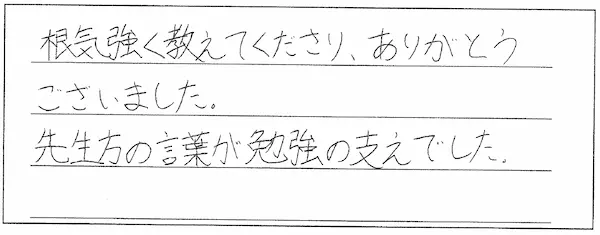 根気強く教えてくださり、ありがとう
ございました。
先生方の言葉が勉強の支えでした。